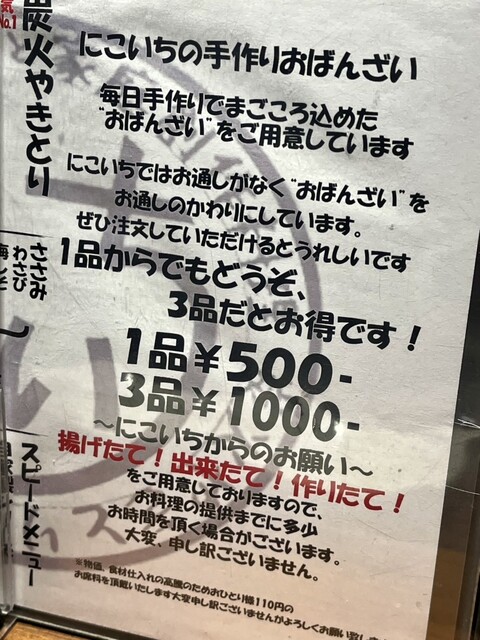 にこいちの手作りおばんざい
毎日手作りでまごころ込めた
"おばんざい"をご用意しています
にこいちではお通しがなく"おばんざい"を
お通しのかわりにしています。
ぜひ注文していただけるとうれしいです
1品からでもどうぞ、
3品だとお得です！
1品￥500-
3品￥1000-
～にこいちからのお願い～
揚げたて！出来たて！作りたて！
をご用意しておりますので、
お料理の提供までに多少
お時間を頂く場合がございます。
大変、申し訳ございません。
※物価、食材仕入れの高騰のためおひとり様110円の
お席料を頂戴いたします大変申し訳ございませんがよろしくお願い致しま
気
No.1
炭火やきとり
ささみ
わさび
梅しそ
スピードメニュー